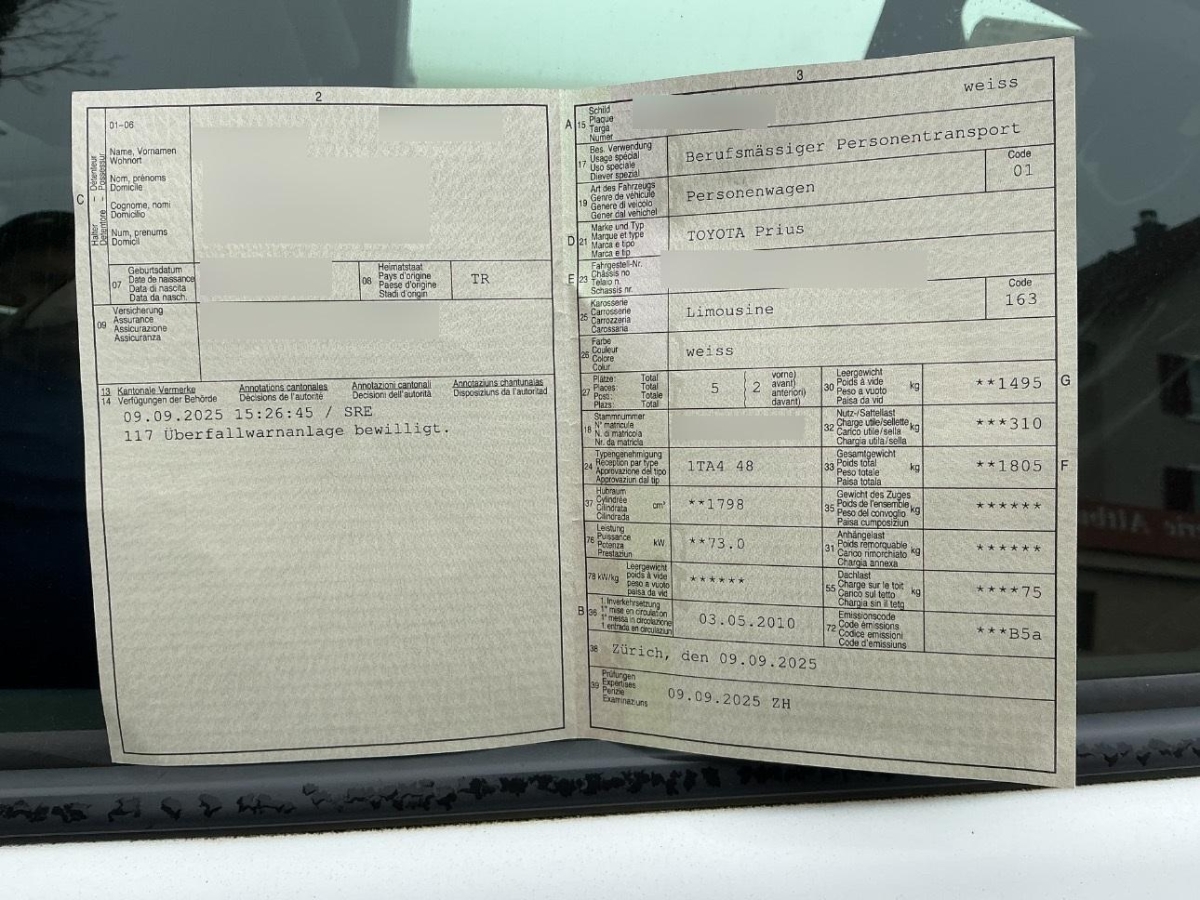 2
01-06
C
Halter – Détenteur
Detentore – Possessur
Name, Vornamen
Wohnort
Nom, prénoms
Domicile
Cognome, nomi
Domicilio
Num, prenums
Domicil
07
Geburtsdatum
Date de naissance
Data di nascita
Data da nasch.
08
Heimatstaat
Pays d'origine
Paese d'origine
Stadi d'origin
TR
09
Versicherung
Assurance
Assicurazione
Assicuranza
13 Kantonale Vermerke Annotations cantonales Annotazioni cantonali Annotaziuns chantunalas
14 Verfügungen der Behörde Décisions de l'autorité Decisioni dell'autorità Disposiziuns da l'autoritad
09.09.2025 15:26:45 / SRE
117 Überfallwarnanlage bewilligt.
3
A 15
Schild
Plaque
Targa
Numer
weiss
17
Bes. Verwendung
Usage spécial
Uso speciale
Diever spezial
Berufsmässiger Personentransport
19
Art des Fahrzeugs
Genre de véhicule
Genere di veicolo
Gener dal vehichel
Personenwagen
Code
01
D 21
Marke und Typ
Marque et type
Marca e tipo
Marca e tip
TOYOTA Prius
E 23
Fahrgestell-Nr.
Châssis no
Telaio n.
Schassis nr.
25
Karosserie
Carrosserie
Carrozzeria
Carossaria
Limousine
Code
163
26
Farbe
Couleur
Colore
Colur
weiss
27
Plätze: Total
Places: Total
Posti: Totale
Plazs: Total
5
{ 2
vorne}
avant}
anteriori}
davant}
30
Leergewicht
Poids à vide
Peso a vuoto
Paisa da vid
kg
**1495
G
18
Stammnummer
N° matricule
N. di matricola
Nr. da matricla
32
Nutz-/Sattellast
Charge utile/sellette
Carico utile/sella
Chargia utila/sella
kg
***310
24
Typengenehmigung
Réception par type
Approvazione del tipo
Approvaziun dal tip
1TA4 48
33
Gesamtgewicht
Poids total
Peso totale
Paisa totala
kg
**1805
F
37
Hubraum
Cylindrée
Cilindrata
Cilindrada
cm³
**1798
35
Gewicht des Zuges
Poids de l'ensemble
Peso del convoglio
Paisa cumposiziun
kg
******
76
Leistung
Puissance
Potenza
Prestaziun
kW
**73.0
31
Anhängelast
Poids remorquable
Carico rimorchiato
Chargia annexa
kg
******
78 kW/kg
Leergewicht
poids à vide
peso a vuoto
paisa da vid
******
55
Dachlast
Charge sur le toit
Carico sul tetto
Chargia sin il tetg
kg
****75
B 36
1. Inverkehrsetzung
1re mise en circulation
1a messa in circolazione
1. entrada en circulaziun
03.05.2010
72
Emissionscode
Code émissions
Codice emissioni
Code d'emissiuns
***B5a
38
Zürich, den 09.09.2025
39
Prüfungen
Expertises
Perizie
Examinaziuns
09.09.2025 ZH